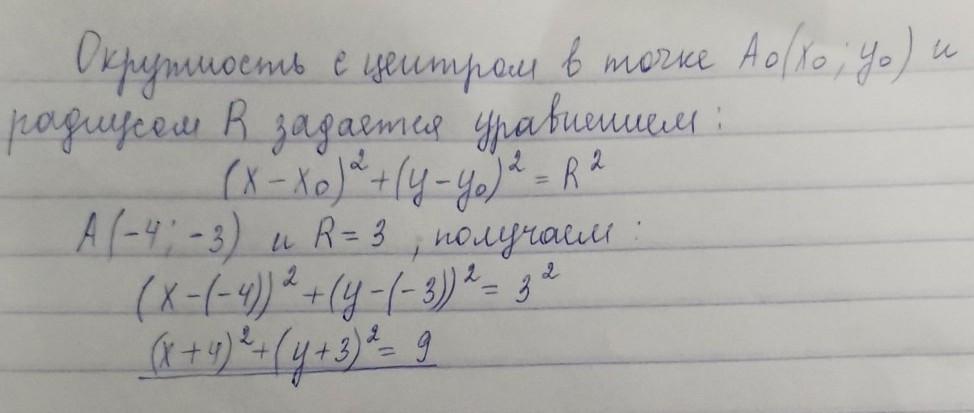 Окружность с центром в точке A₀(x₀; y₀) и
радиусом R задается уравнением:
(x-x₀)²+(y-y₀)²=R²
A(-4; -3) и R=3, получаем:
(x-(-4))²+(y-(-3))²=3²
(x+4)²+(y+3)²=9